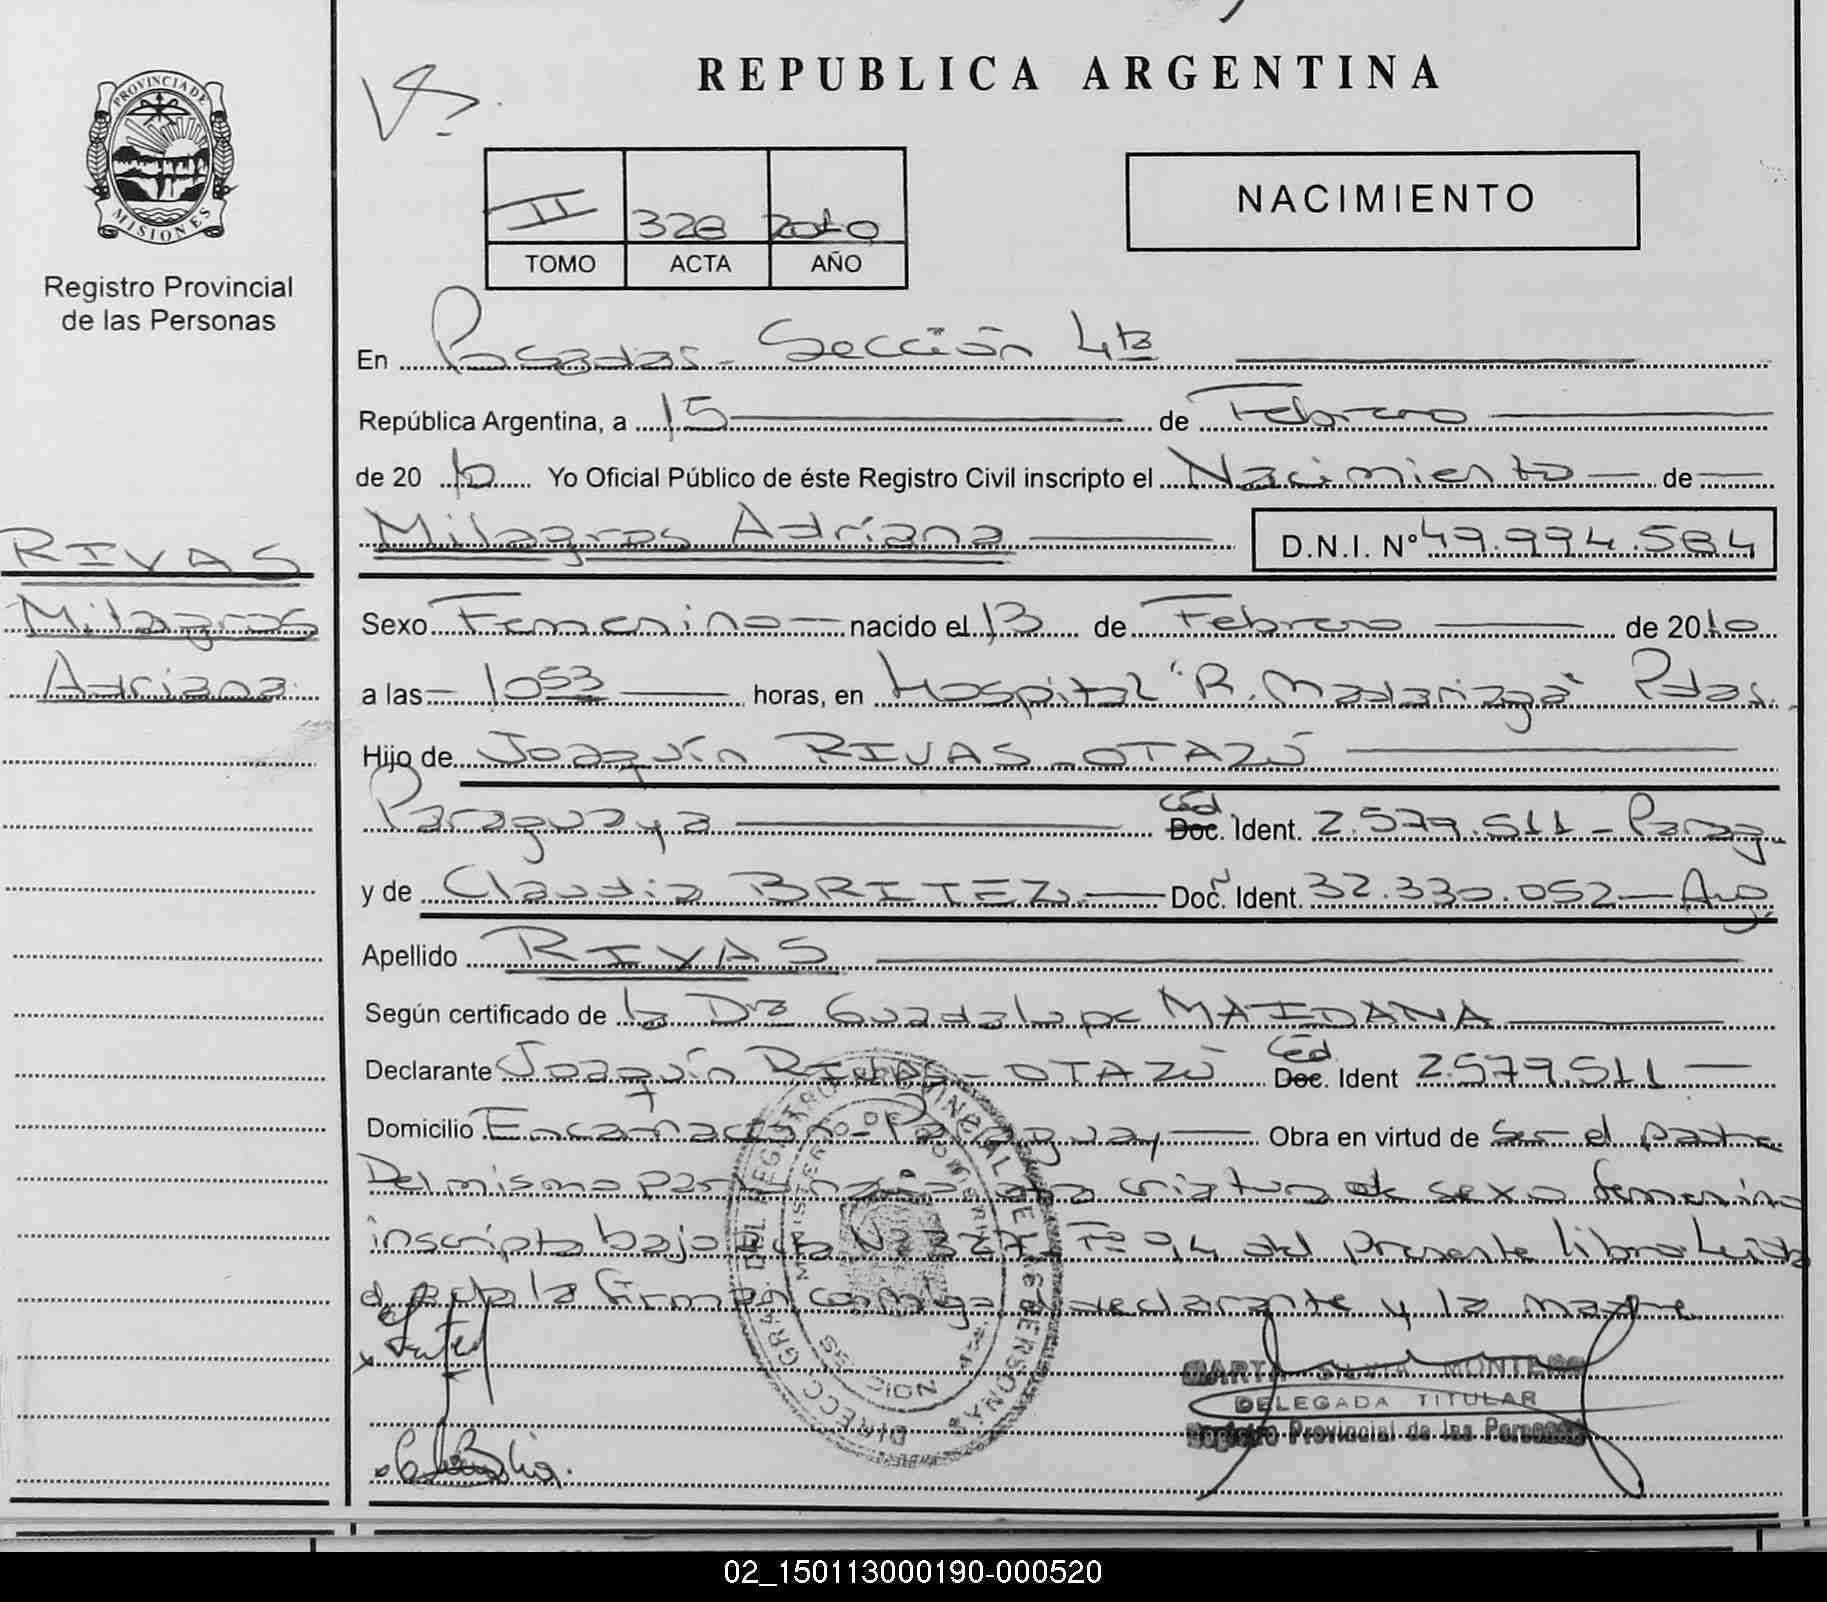 REPUBLICA ARGENTINA
PROVINCIA DE
MISIONES
Registro Provincial
de las Personas
II 328 2010
TOMO ACTA AÑO
NACIMIENTO
En Posadas - Sección 4ta
República Argentina, a 15 de Febrero
de 20 10 Yo Oficial Público de éste Registro Civil inscripto el Nacimiento de
Milagros Adriana D.N.I. Nº 49.994.584
RIVAS
Milagros
Adriana
Sexo Femenino nacido el 13 de Febrero de 2010
a las 10 53 horas, en Hospital "R. Madariaga" Pdas.
Hijo de Joaquín RIVAS - OTAZÚ
Paraguaya Céd Doc. Ident. 2.579.511 - Parag.
y de Claudia BRITEZ Doc. Ident. 32.330.052 - Arg.
Apellido RIVAS
Según certificado de la Dra Guadalupe MAIDANA
Declarante Joaquín RIVAS - OTAZÚ Céd Doc. Ident 2.579.511
Domicilio Encarnación - Paraguay Obra en virtud de Ser el padre
Del mismo parto nació otra criatura de sexo femenino
inscripta bajo acta Nº 327 Fº 94 del presente libro Leída
el acta la firman conmigo el declarante y la madre
MARTA SILVIA MONTERO
DELEGADA TITULAR
Registro Provincial de las Personas
02_150113000190-000520